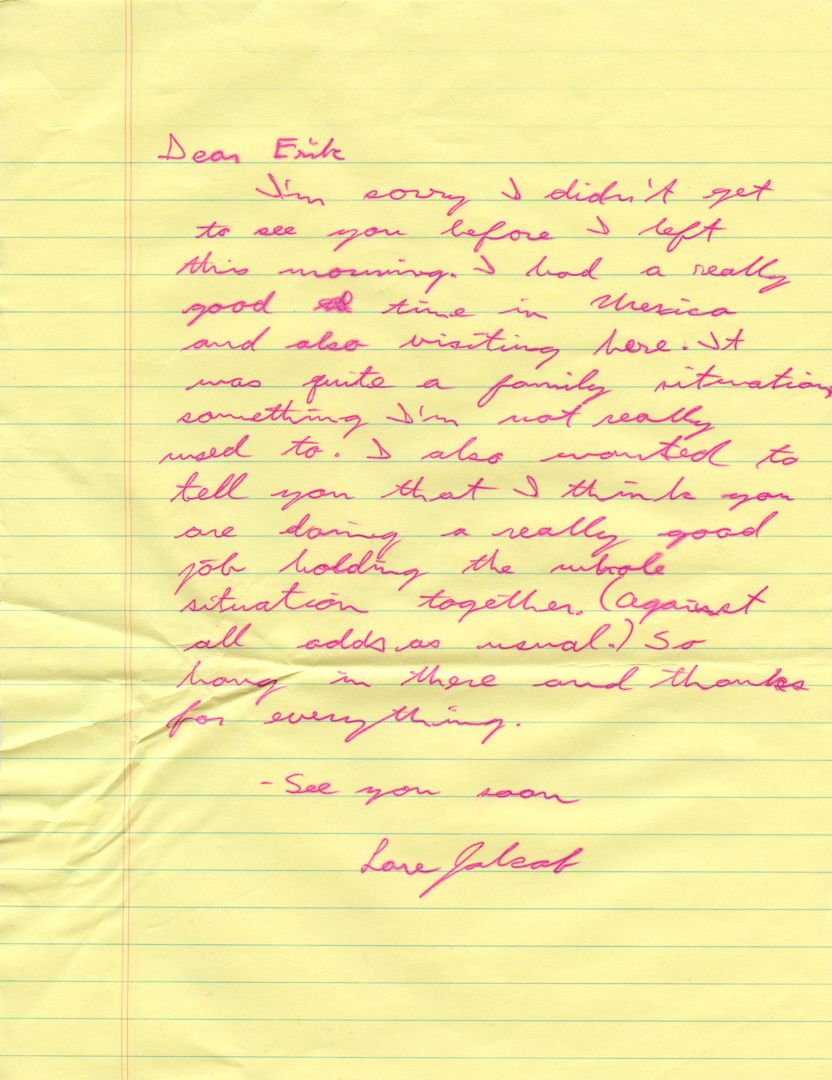 Dear Erik
I'm sorry I didn't get
to see you before I left
this morning. I had a really
good time in Mexico
and also visiting here. It
was quite a family situation,
something I'm not really
used to. I also wanted to
tell you that I think you
are doing a really good
job holding the whole
situation together. (against
all odds as usual.) So
hang in there and thanks
for everything.
- See you soon
Love